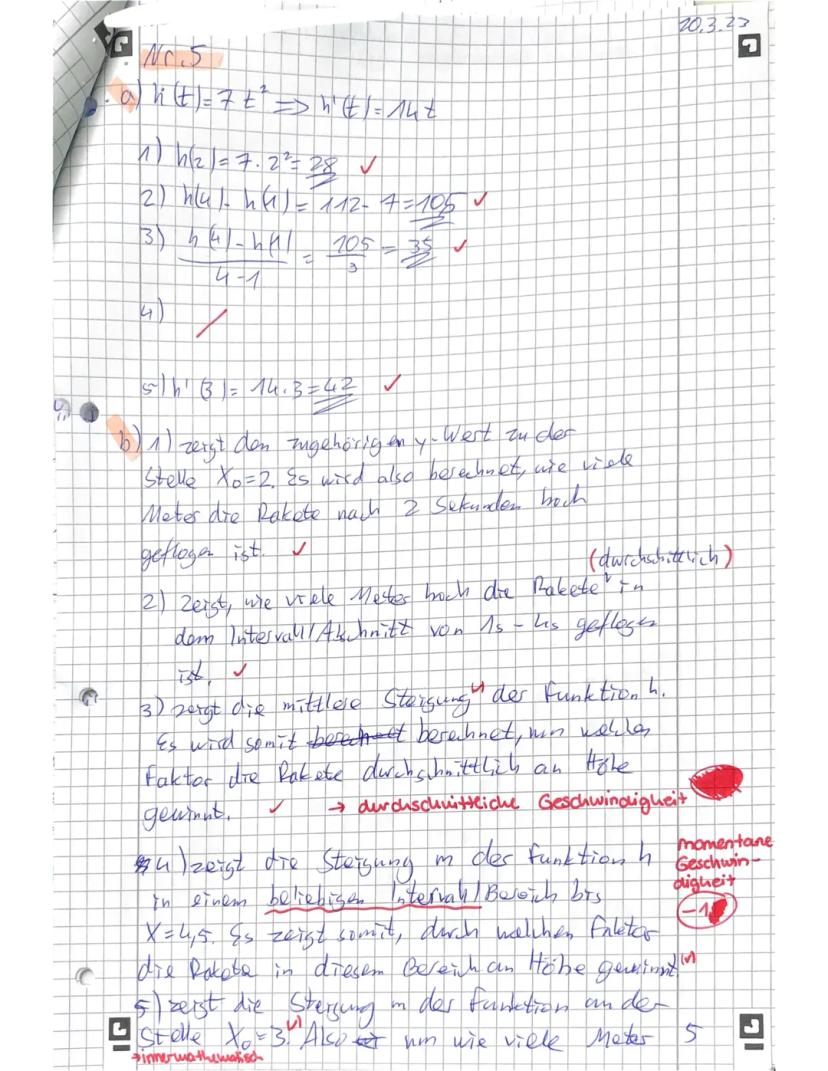 20.3.23
Nr.5
a) h(t)=7t² => h'(t)=14t
1) h(2)=7·2²=28 ✓
2) h(4)-h(1)=112-7=105 ✓
3) h(4)-h(1) / 4-1 = 105/3 = 35 ✓
4) /
5) h'(3)=14·3=42 ✓
b) 1) zeigt den zugehörigen y-Wert zu der
Stelle X₀=2. Es wird also berechnet, wie viele
Meter die Rakete nach 2 Sekunden hoch
geflogen ist. ✓
(durchschittlich)
2) zeigt, wie viele Meter hoch die Rakete in
dem Intervall/Abschnitt von 1s-4s geflogen
ist. ✓
3) zeigt die mittlere Steigung ✓ der Funktion h.
Es wird somit berechnet berechnet, um welchen
Faktor die Rakete durchschnittlich an Höhe
gewinnt. ✓ → durchschnittliche Geschwindigkeit
4) zeigt die Steigung m der Funktion h
momentane
Geschwin-
digkeit
-1
in einem beliebigen Intervall/Bereich bis
X=4,5. Es zeigt somit, durch welchen Faktor
die Rakete in diesem Bereich an Höhe gewinnt. (✓)
5) zeigt die Steigung m der Funktion an der
Stelle X₀=3. (✓) Also um wie viele Meter 5
→ innermathematisch